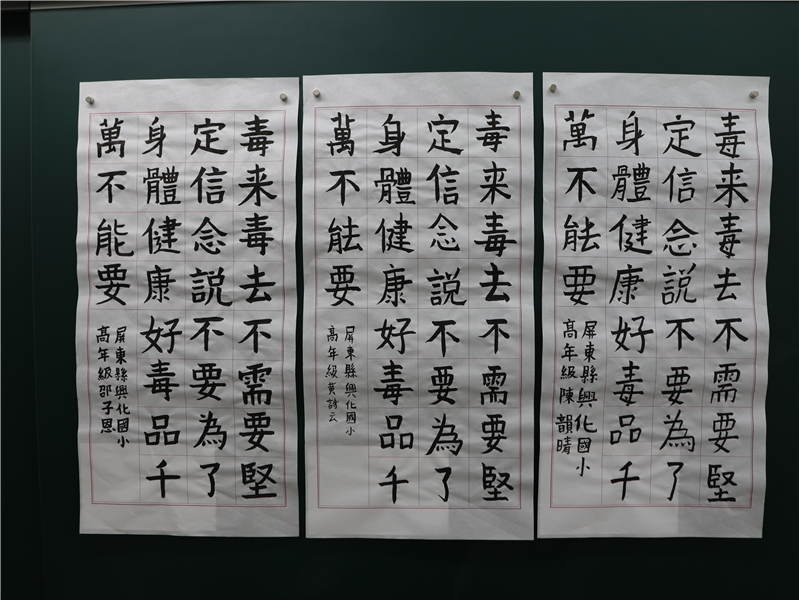 毒来毒去不需要堅
定信念說不要為了
身體健康好毒品千
萬不能要
屏東縣興化國小
高年級陳韻晴
毒来毒去不需要堅
定信念說不要為了
身體健康好毒品千
萬不能要
屏東縣興化國小
高年級
毒来毒去不需要堅
定信念說不要為了
身體健康好毒品千
萬不能要
屏東縣興化國小
高年級邵子恩